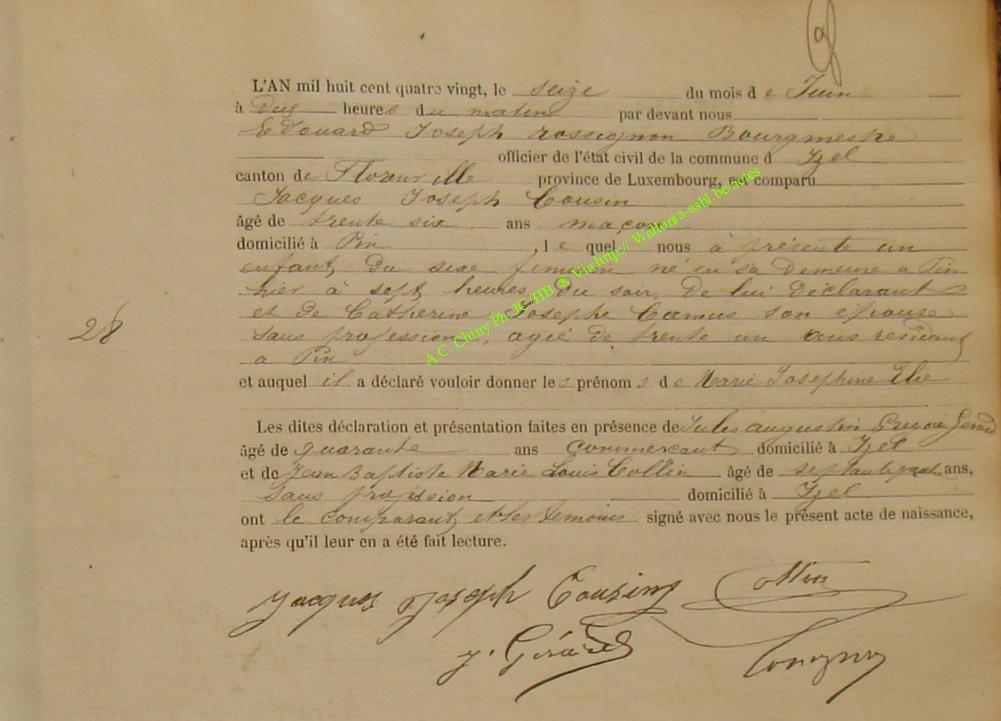 L'AN mil huit cent quatre vingt, le seize du mois de Juin
à dix heures du matin par devant nous
Edouard Joseph rossignon Bourgmestre
officier de l'état civil de la commune d Izel
canton de Florenville province de Luxembourg, est comparu
Jacques Joseph Cousin
âgé de trente six ans maçon
domicilié à Pin, le quel nous à présente un
enfant du sexe feminin né en sa demeure a Pin
hier à sept heures du soir, de lui déclarant
et de Catherine Josephe Camus son epouse
sans profession, agée de trente un ans residant
a Pin
28
et auquel il a déclaré vouloir donner les prénoms de Marie Josephine
Les dites déclaration et présentation faites en présence de Jules augustin Gerard
âgé de quarante ans commercant domicilié à Izel
et de Jean Baptiste Marie Louis Collin âgé de ans,
sans profession domicilié à Izel
ont le comparant et les temoins signé avec nous le présent acte de naissance,
après qu'il leur en a été fait lecture.
Jacques Joseph Cousin Collin
J. Gérard
A.C. Chiny Ph. JG/HB @ Via http// Wallonia-asbl.be/actes